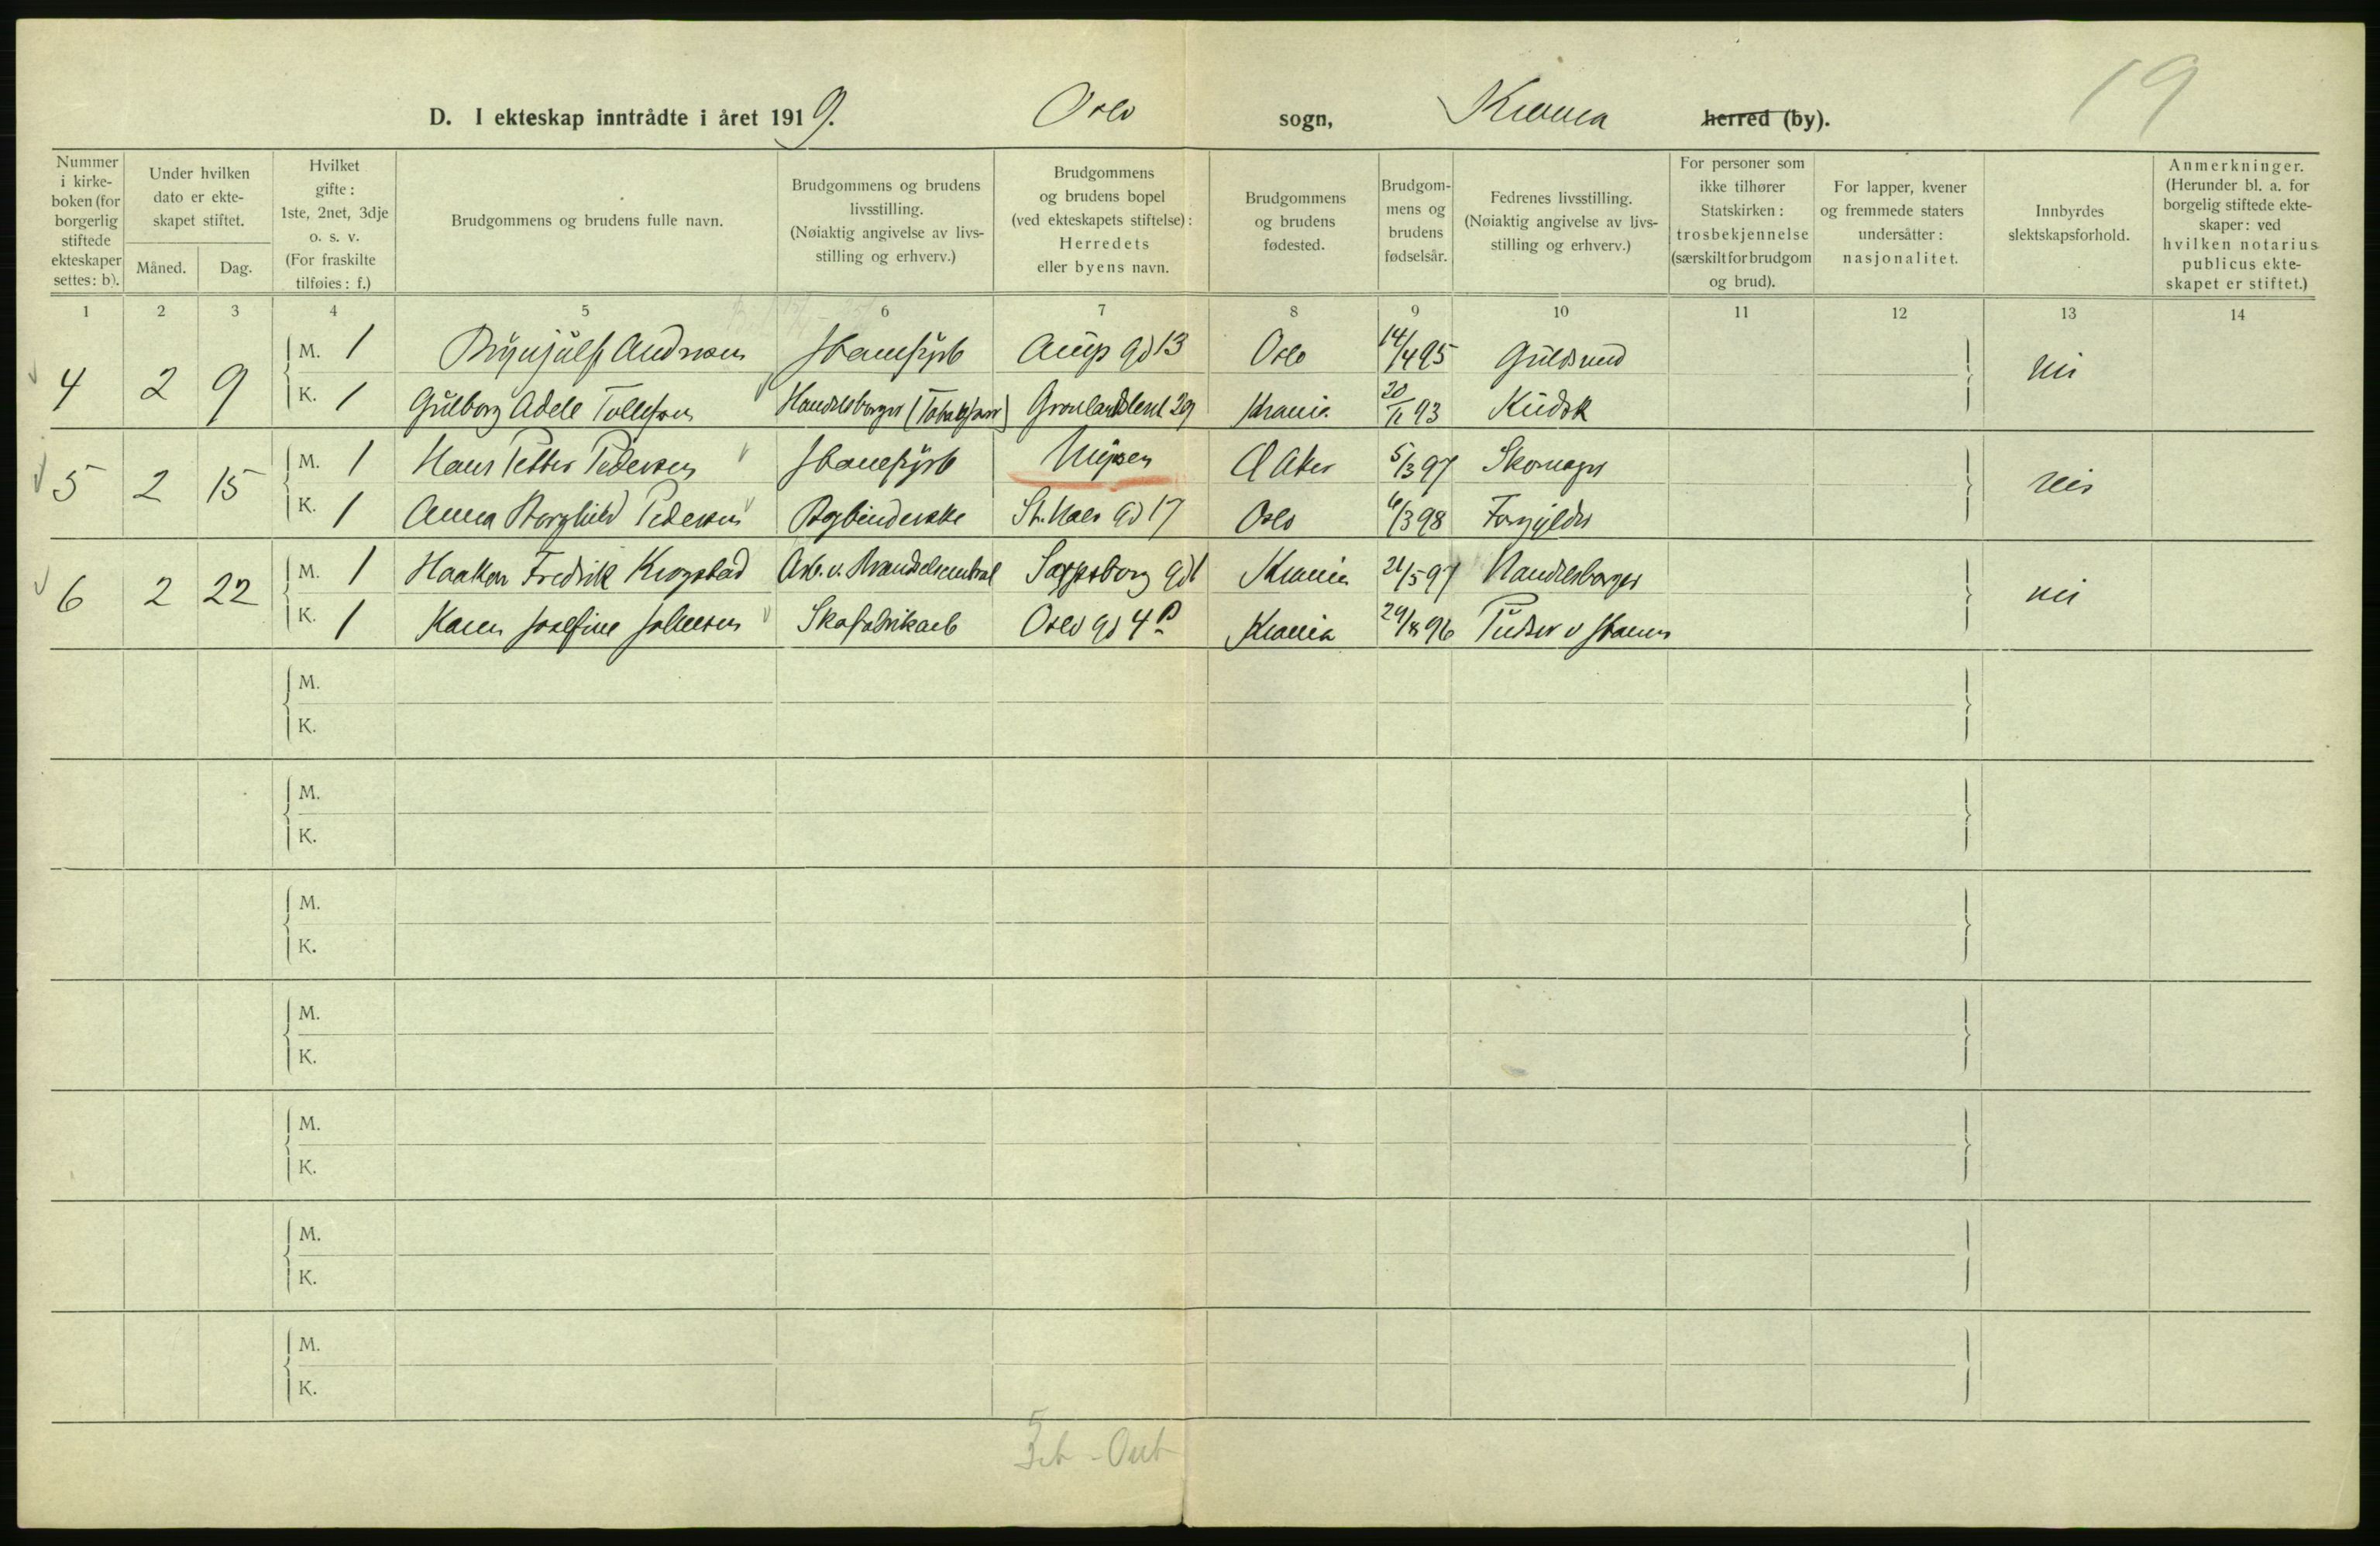 19
D. I ekteskap inntrådte i året 1919. Oslo sogn, Krania herred (by).
Nummer i kirke-boken (for borgerlig stiftede ekteskaper settes: b).
Under hvilken dato er ekte-skapet stiftet.
Måned. Dag.
Hvilket gifte: 1ste, 2net, 3dje o. s. v. (For fraskilte tilføies: f.)
Brudgommens og brudens fulle navn.
Brudgommens og brudens livsstilling. (Nøiaktig angivelse av livs-stilling og erhverv.)
Brudgommens og brudens bopel (ved ekteskapets stiftelse): Herredets eller byens navn.
Brudgommens og brudens fødested.
Brudgom-mens og brudens fødselsår.
Fedrenes livsstilling. (Nøiaktig angivelse av livs-stilling og erhverv.)
For personer som ikke tilhører Statskirken: trosbekjennelse (særskilt for brudgom og brud).
For lapper, kvener og fremmede staters undersåtter: nasjonalitet.
Innbyrdes slektskapsforhold.
Anmerkninger. (Herunder bl. a. for borgelig stiftede ekte-skaper: ved hvilken notarius publicus ekte-skapet er stiftet.)
1 2 3 4 5 6 7 8 9 10 11 12 13 14
4 2 9 M. 1 Brynjulf Andresen Oslo 14/4 95 nei
K. 1 Gulborg Adele Tollefsen Handelsborger Grønlandsleret 29 Krania 20/11 93 Kudsk
5 2 15 M. 1 Hans Petter Pedersen Mysen Ø Aker 5/3 97 Skomager nei
K. 1 Anna Borghild Pedersen Bogbinderske St. Hals gd 17 Oslo 6/3 98 Forgylder
6 2 22 M. 1 Haakon Fredrik Krogstad Arb. v. Brændselscentral Sarpsborg gd 1 Krania 21/5 97 Handelsborger nei
K. 1 Karen Josefine Johnsen Skofabrikarb Oslo gd 4 B Krania 29/8 96 Pudser v Jbanen
M.
K.
M.
K.
M.
K.
M.
K.
M.
K.
M.
K.
M.
K.